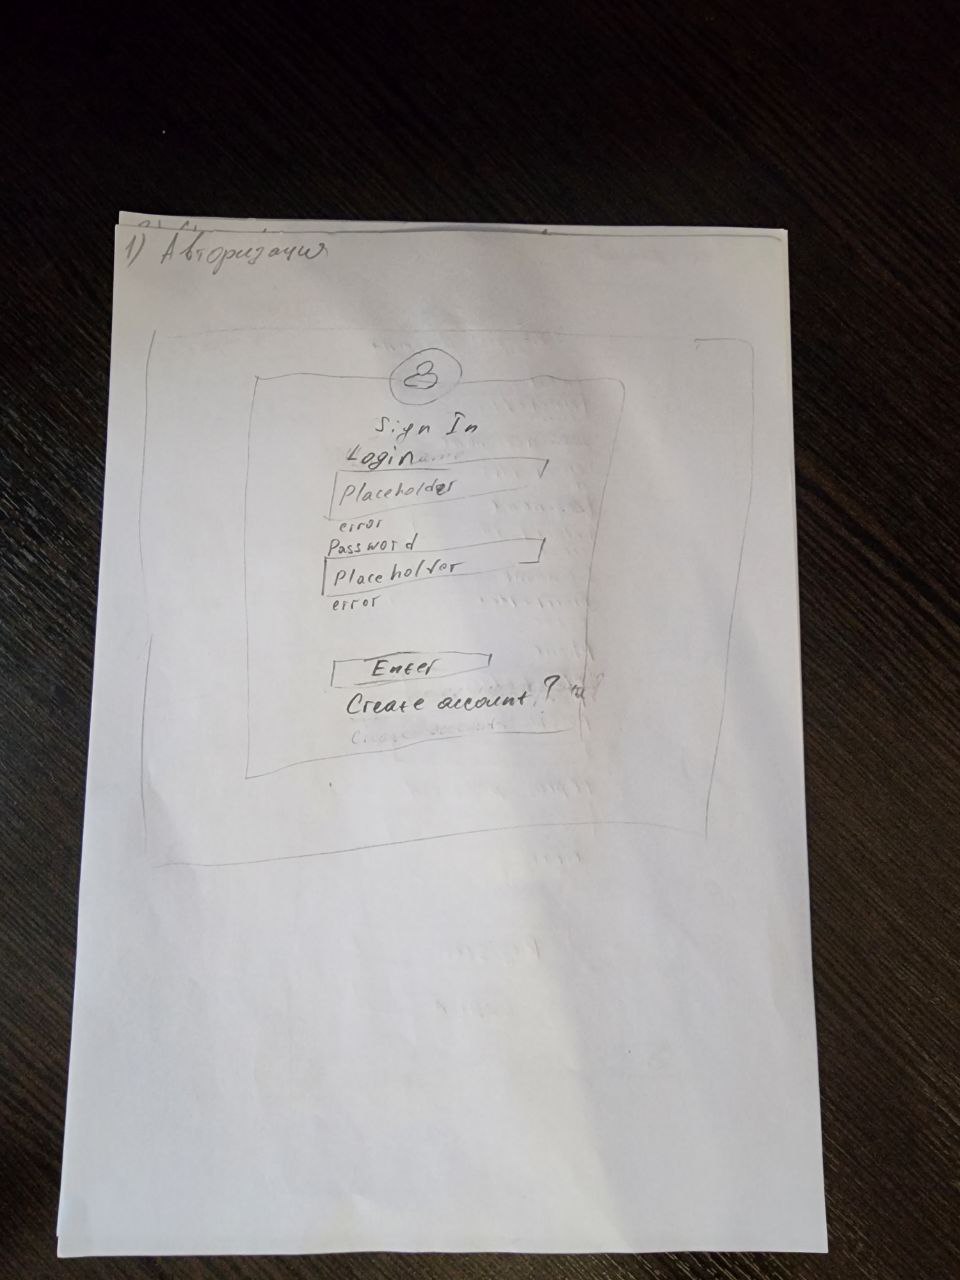 1) Авторизация
Sign In
Login
Placeholder
error
Password
Placeholder
error
Enter
Create account?